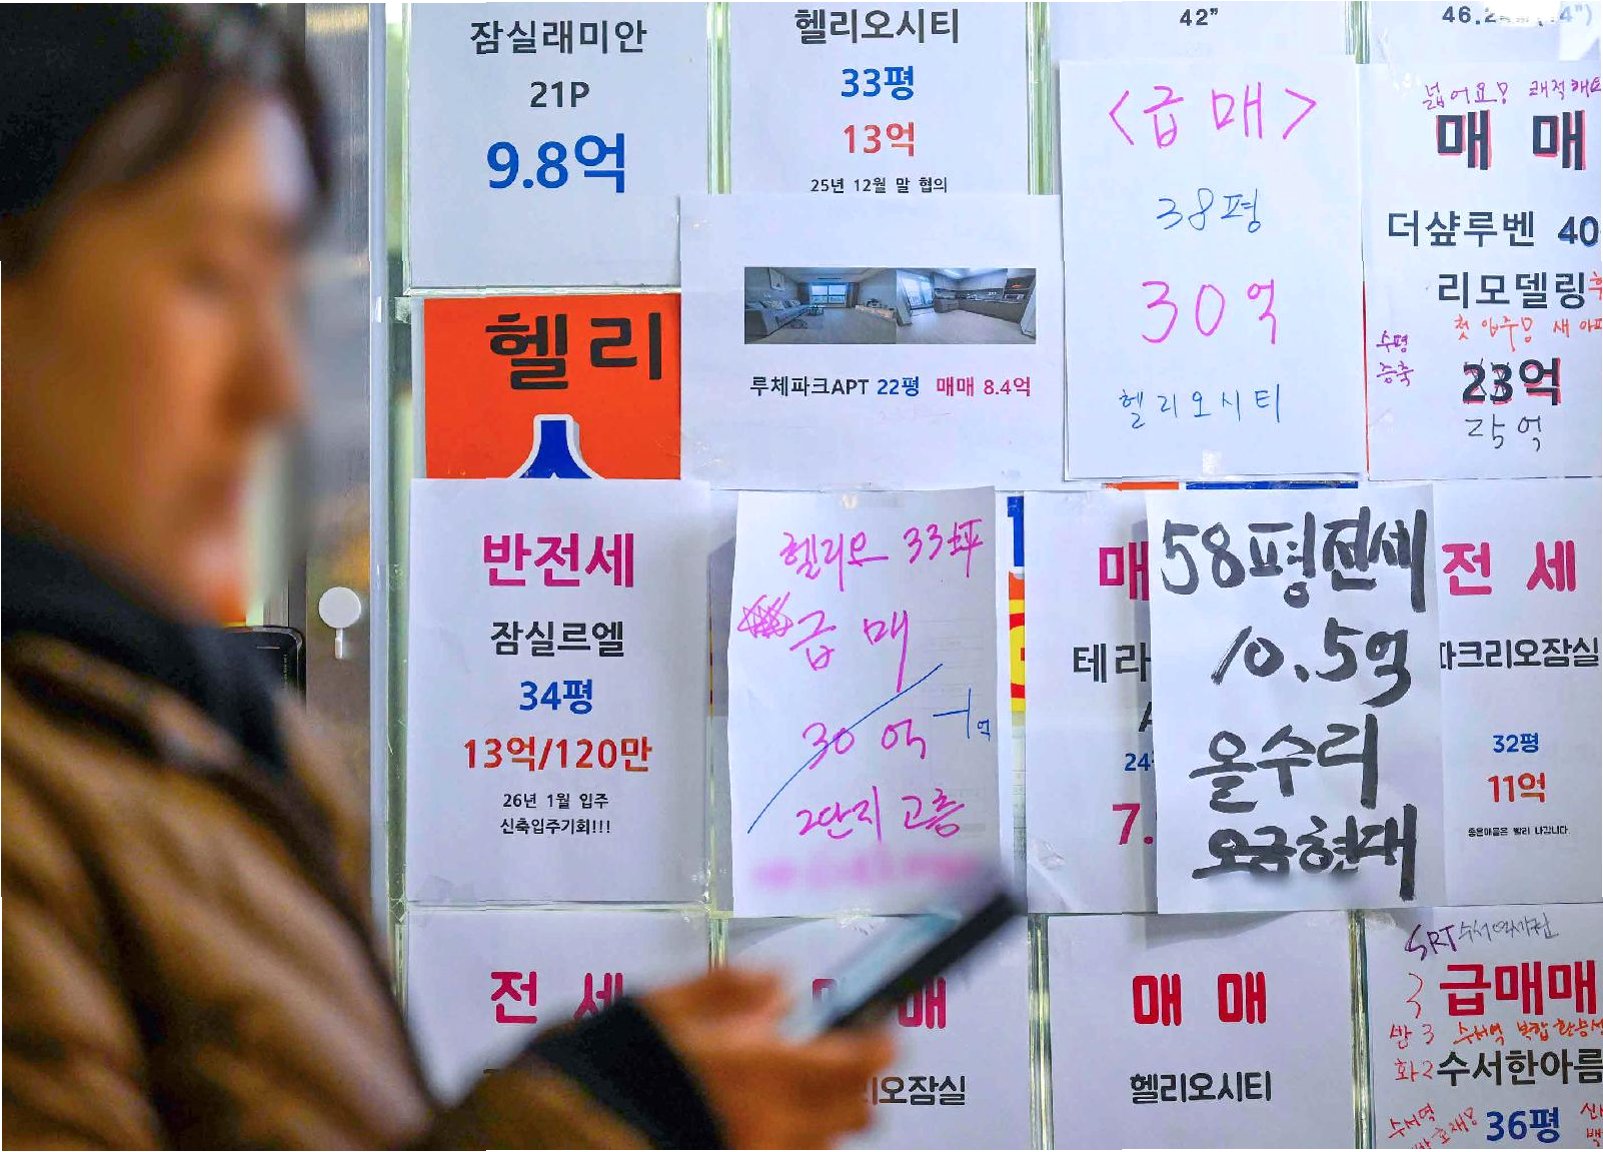 잠실래미안
21P
9.8억
헬리오시티
33평
13억
25년 12월 말 협의
42”
<급매>
38평
30억
헬리오시티
넓어요
매 매
더샾루벤 40
리모델링
첫 입주 새 아파
수평
증축
23억
25억
헬리
루체파크APT 22평 매매 8.4억
반전세
잠실르엘
34평
13억/120만
26년 1월 입주
신축입주기회!!!
헬리오 33坪
급매
30억
2단지 고층
매
테라
24
7.
58평전세
10.5억
올수리
오금현대
전 세
파크리오잠실
32평
11억
좋은매물은 빨리 나갑니다.
전 세
매
오잠실
매 매
헬리오시티
SRT 수서역세권
급매매
방3
화2
수서역 복합환승
수서한아름
수서역
36평